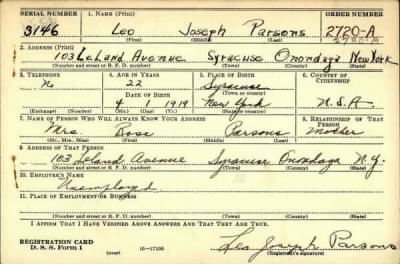 SERIAL NUMBER 1. NAME (Print) ORDER NUMBER
3146 Leo Joseph Parsons 2720-A
(First) (Middle) (Last)
2. ADDRESS (Print)
103 LeLand Avenue Syracuse Onondaga New York
(Number and street or R. F. D. number) (Town) (County) (State)
3. TELEPHONE 4. AGE IN YEARS 5. PLACE OF BIRTH 6. COUNTRY OF CITIZENSHIP
No 22 Syracuse
DATE OF BIRTH (Town or county)
4 1 1919 New York U.S.A
(Exchange) (Number) (Mo.) (Day) (Yr.) (State or country)
7. NAME OF PERSON WHO WILL ALWAYS KNOW YOUR ADDRESS 8. RELATIONSHIP OF THAT PERSON
Mrs. Rose Parsons Mother
(Mr., Mrs., Miss) (First) (Middle) (Last)
9. ADDRESS OF THAT PERSON
103 Leland Avenue Syracuse Onondaga N.Y.
(Number and street or R. F. D. number) (Town) (County) (State)
10. EMPLOYER'S NAME
Unemployed
11. PLACE OF EMPLOYMENT OR BUSINESS
(Number and street or R. F. D. number) (Town) (County) (State)
I AFFIRM THAT I HAVE VERIFIED ABOVE ANSWERS AND THAT THEY ARE TRUE.
REGISTRATION CARD
D. S. S. Form 1 (over) 16—17105 Leo Joseph Parsons
(Registrant's signature)